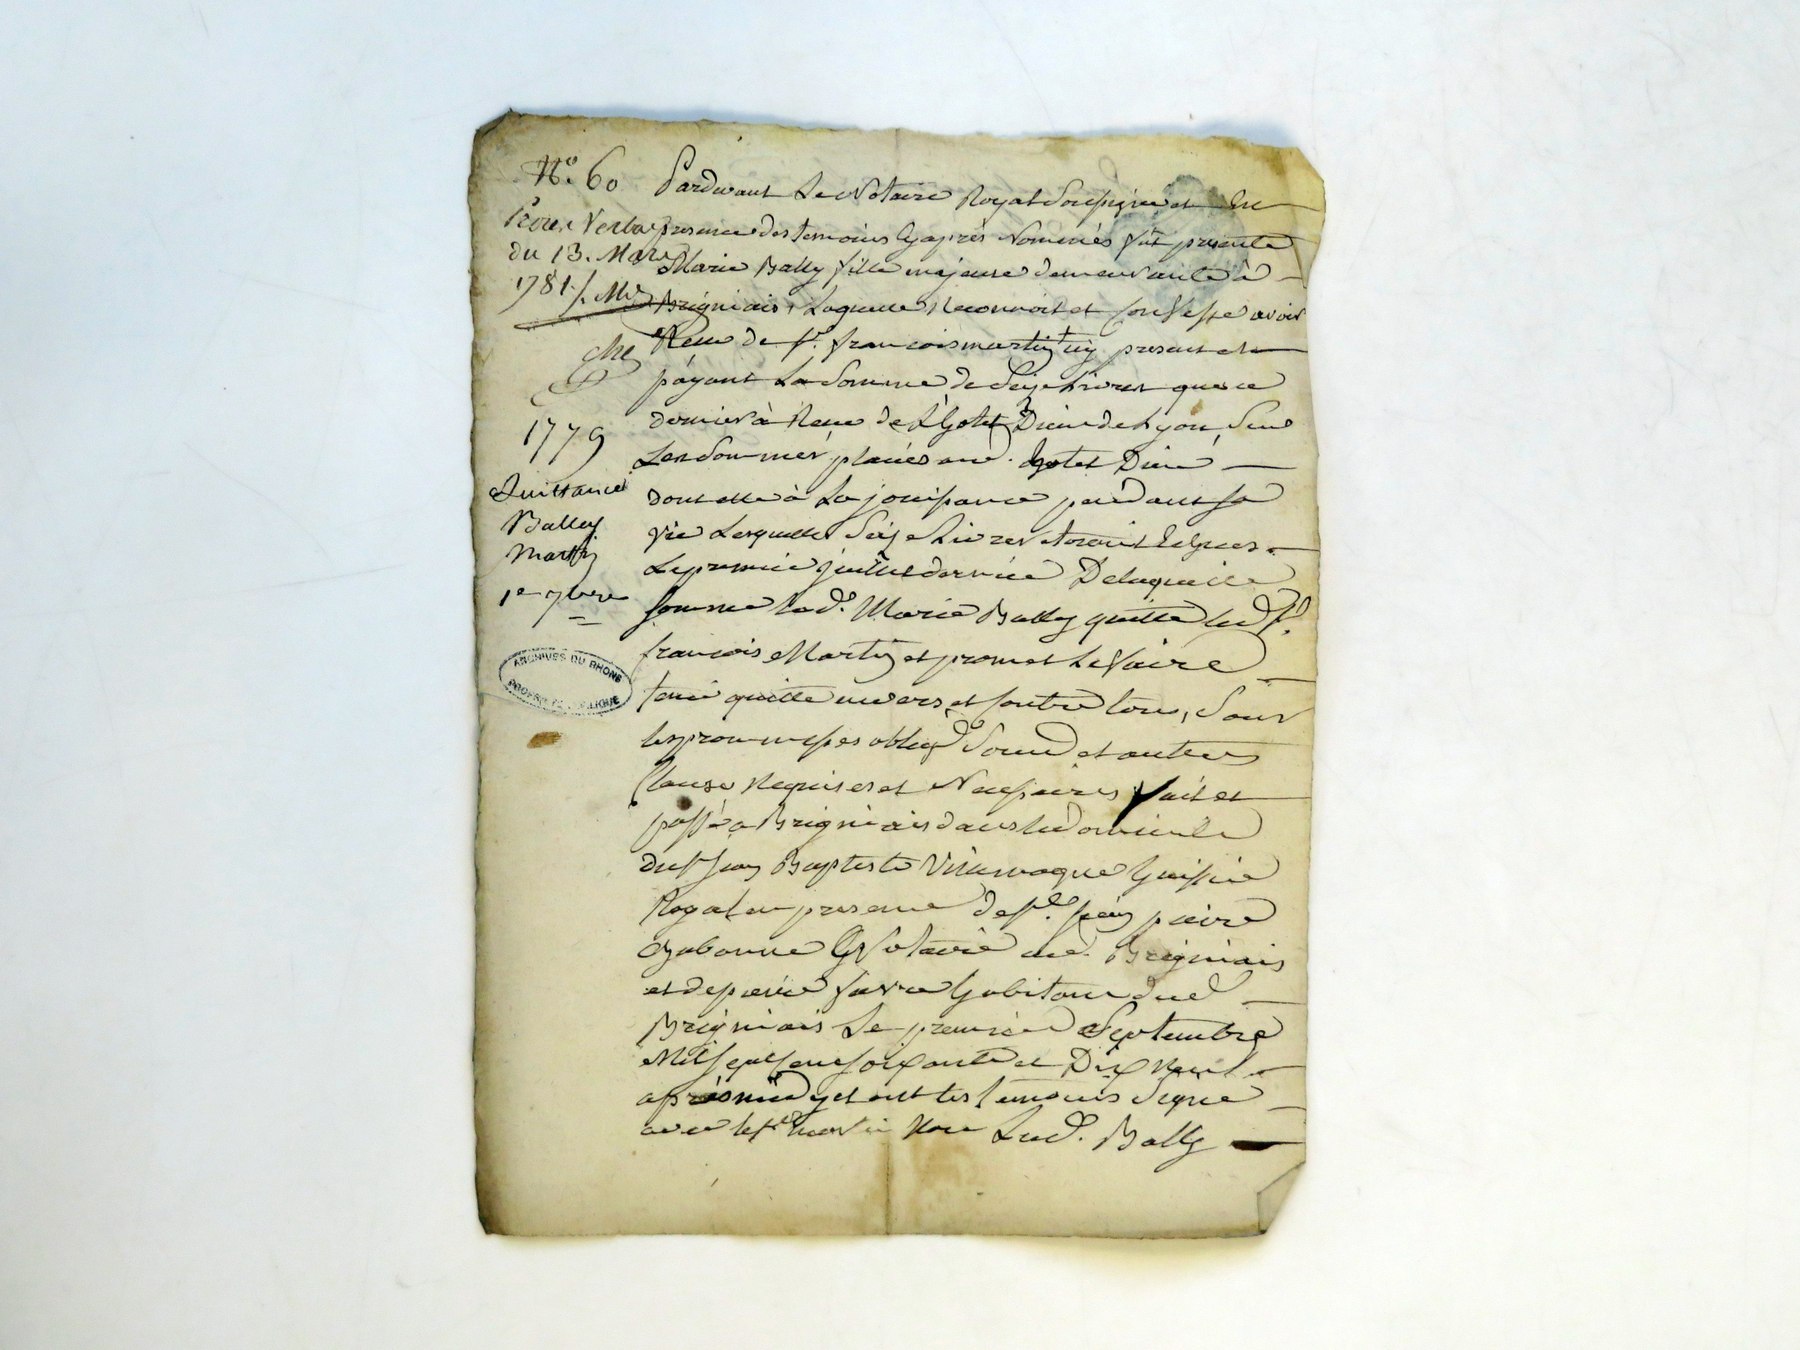 N.o 60
Procès Verbal
du 13. Mars
1781
1779
Quittance
Bally
Martin
1er 7bre
ARCHIVES DU RHONE
PROPRIÉTÉ PUBLIQUE
Pardevant Le Notaire Royal Soussigné et En
presence des temoins Cy après Nommés fut presente
Marie Bally fille majeure demeurante à
Brigniais, Laquelle Reconnoit et Confesse avoir
Reçu de sr. francois martin icy present et
payant La Somme de Seize Livres que ce
dernier à Reçu de L'Hotel Dieu de Lyon, Sur
Les Sommes placés aud. hotel Dieu
dont elle à La jouissance pendant sa
vie Lesquelles Seize Livres etoient Echues
Le premier juillet dernier De laquelle
somme lad.e Marie Bally quitte led. Sr.
francois Martin et promet Le faire
tenir quitte envers et Contre tous, Sous
les promesses oblig.d Soumd et autres
Clause Requises et Necessaires fait et
passé a Brigniais dans le domicile
du sr Jean Baptiste Huissier
Royal en presence de sr. jean pierre
Notaire aud. Brigniais
et de pierre favre habitant dud
Brigniais Le premier Septembre
Mil sept Cent soixante et Dix Neuf
après midy et ont les temoins Signé
avec le sr martin Non Lad. Bally